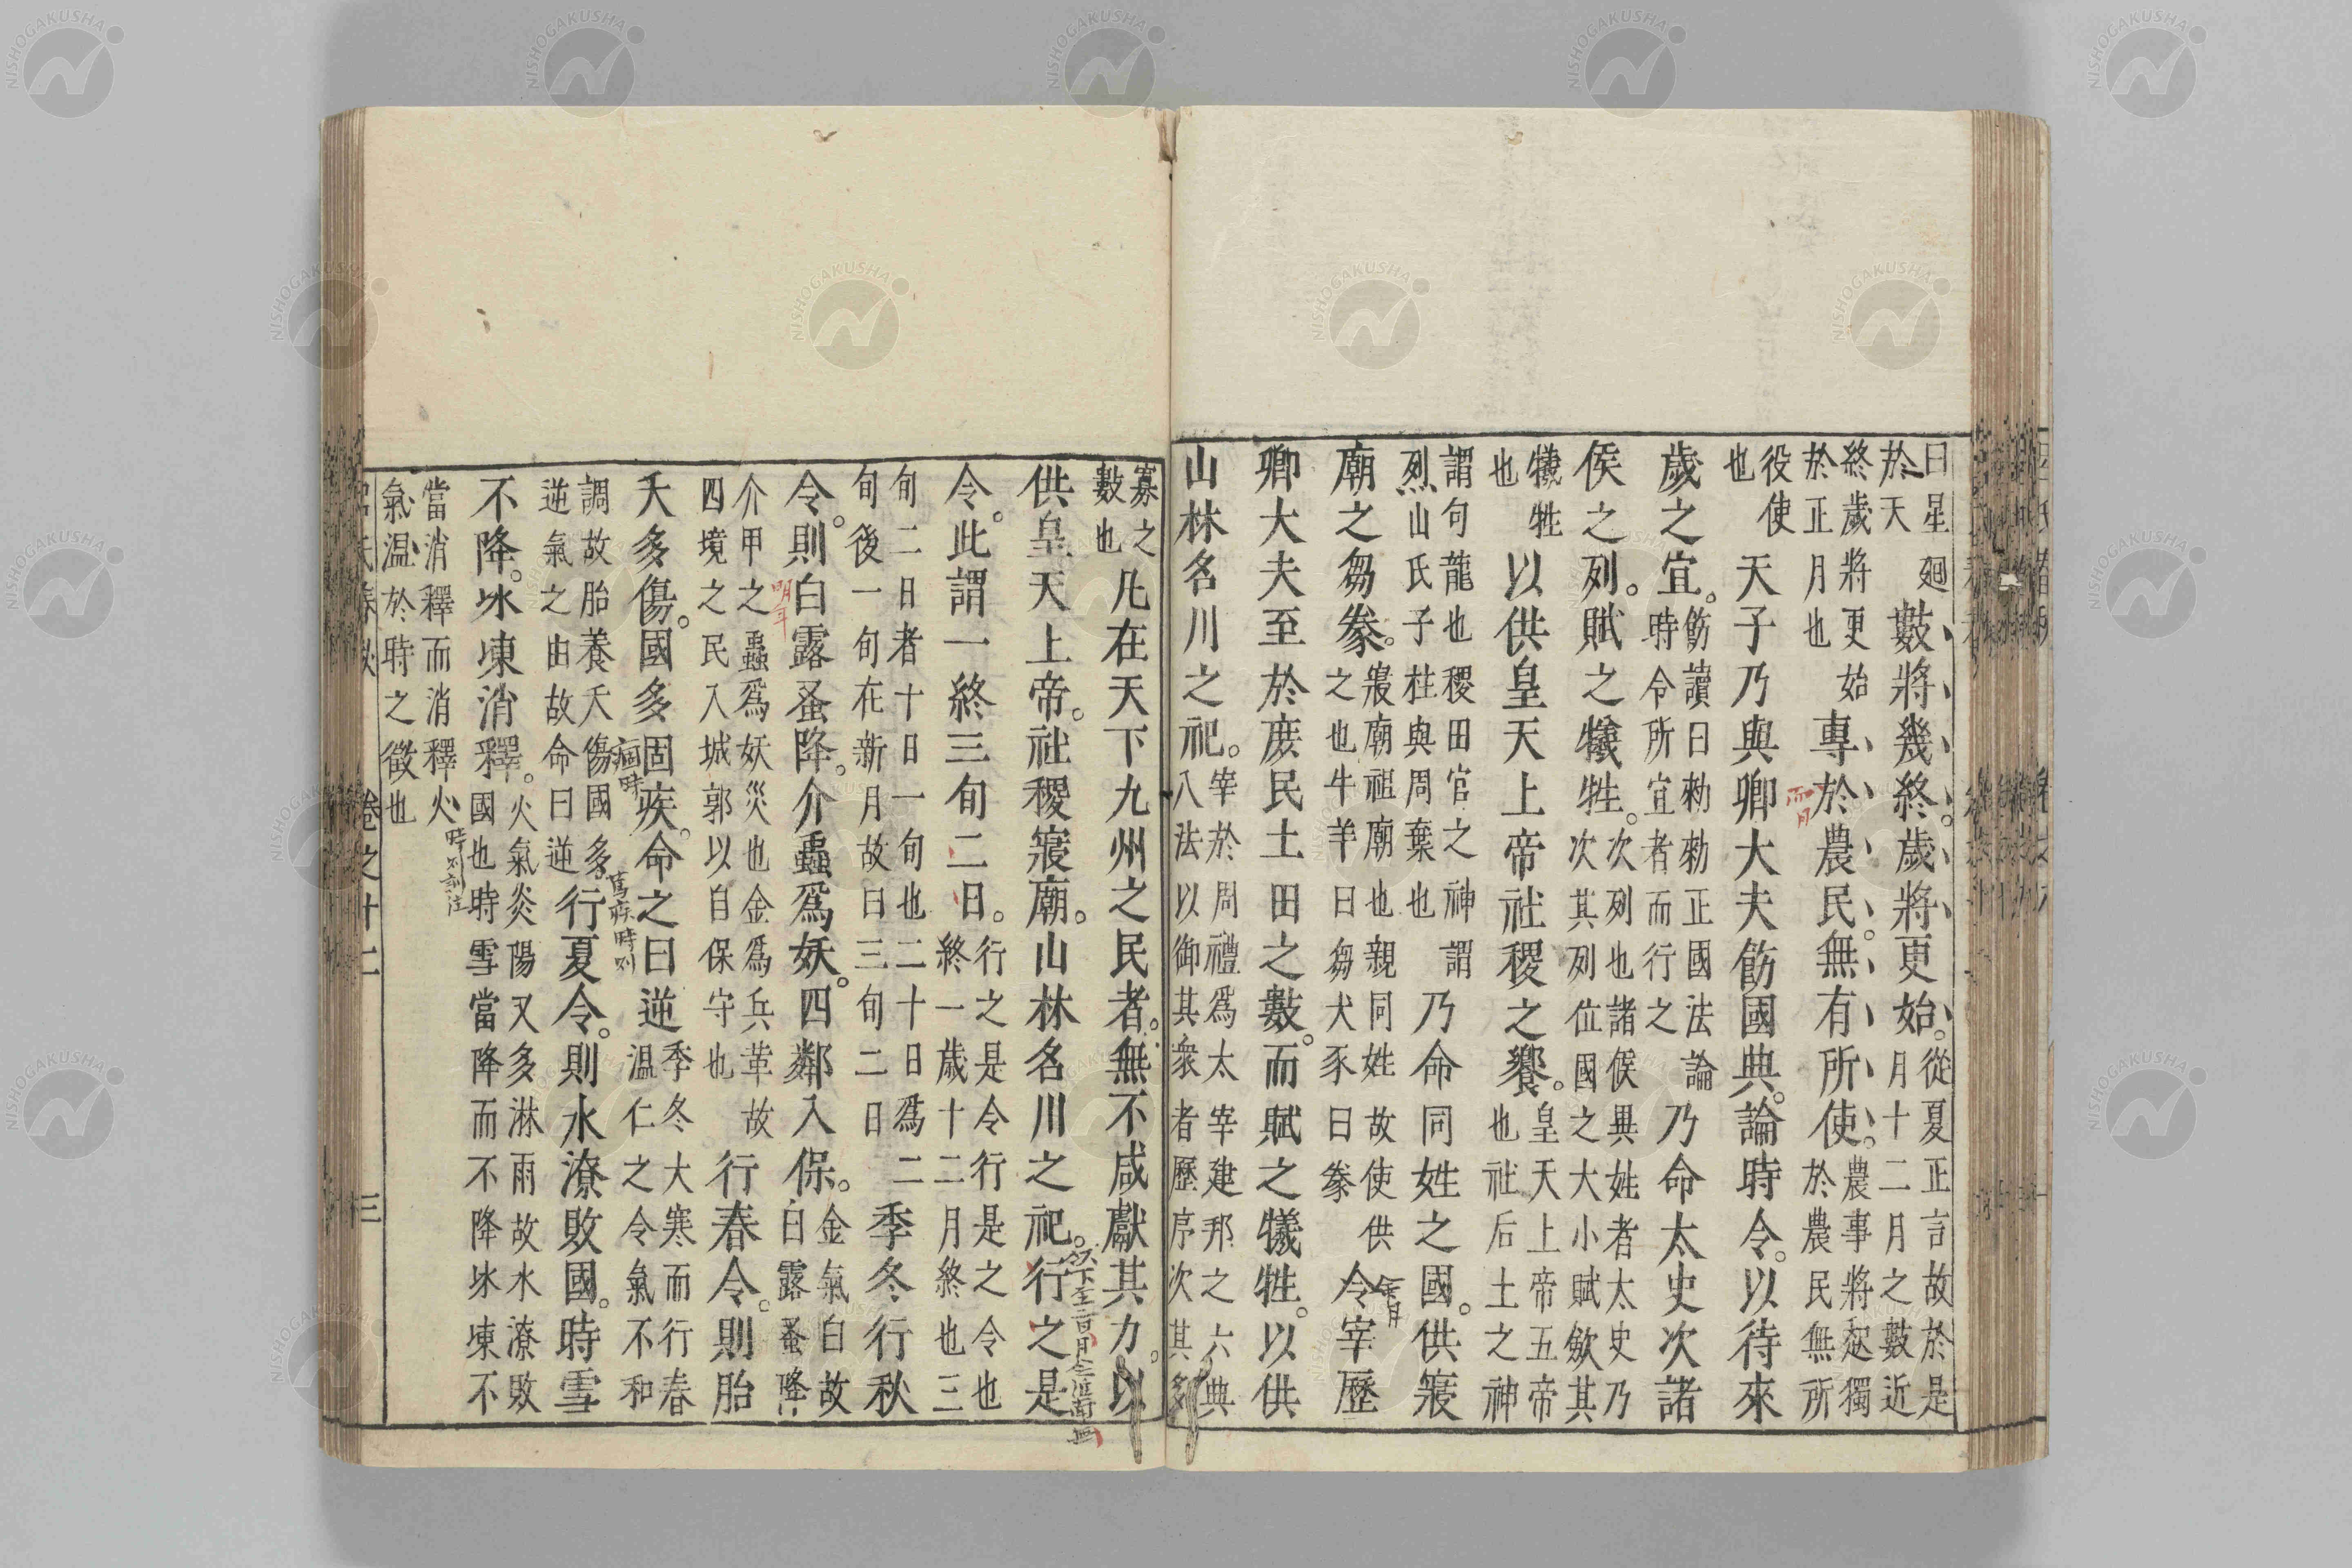 曰星廻
於天
數將幾終。歲將更始。
從夏正言故於是
月十二月之數近
終歲將更始
於正月也
專於農民。無有所使。
農事將起獨
於農民無所
役使
也
天子乃與卿大夫飭國典。論時令。以待來
歲之宜。
飭讀曰勑勑正國法論
時令所宜者而行之
乃命太史次諸
侯之列。賦之犧牲。
次列也諸侯異姓者太史乃
次其列位國之大小賦斂其
犧牲
也
以供皇天上帝社稷之饗。
皇天上帝五帝
也社后土之神
謂句龍也稷田官之神謂
烈山氏子柱與周棄也
乃命同姓之國。供寢
廟之芻豢。
寢廟祖廟也親同姓故使供
之也牛羊曰芻犬豕曰豢
令宰歷
卿大夫至於庶民土田之數。而賦之犧牲。以供
山林名川之祀。
宰於周禮為太宰建邦之六典
八法以御其衆者歷序次其多
寡之
數也
凡在天下九州之民者。無不咸獻其力。以
供皇天上帝。社稷寢廟。山林名川之祀。行之是
令。此謂一終三旬二日。
行之是令行是之令也
終一歲十二月終也三
旬二日者十日一旬也二十日爲二
旬後一旬在新月故曰三旬二日
季冬行秋
令。則白露蚤降。介蟲爲妖。四鄰入保。
金氣白故
白露蚤降
介甲之蟲爲妖災也金爲兵革故
四境之民入城郭以自保守也
行春令。則胎
夭多傷。國多固疾。命之曰逆
季冬大寒而行春
溫仁之令氣不和
調故胎養夭傷國多
逆氣之由故命曰逆
行夏令。則水潦敗國。時雪
不降。冰凍消釋。
火氣炎陽又多淋雨故水潦敗
國也時雪當降而不降冰凍不
當消釋而消釋火
氣溫於時之徵也
卷之十二
三
明年
而月
時則訓注